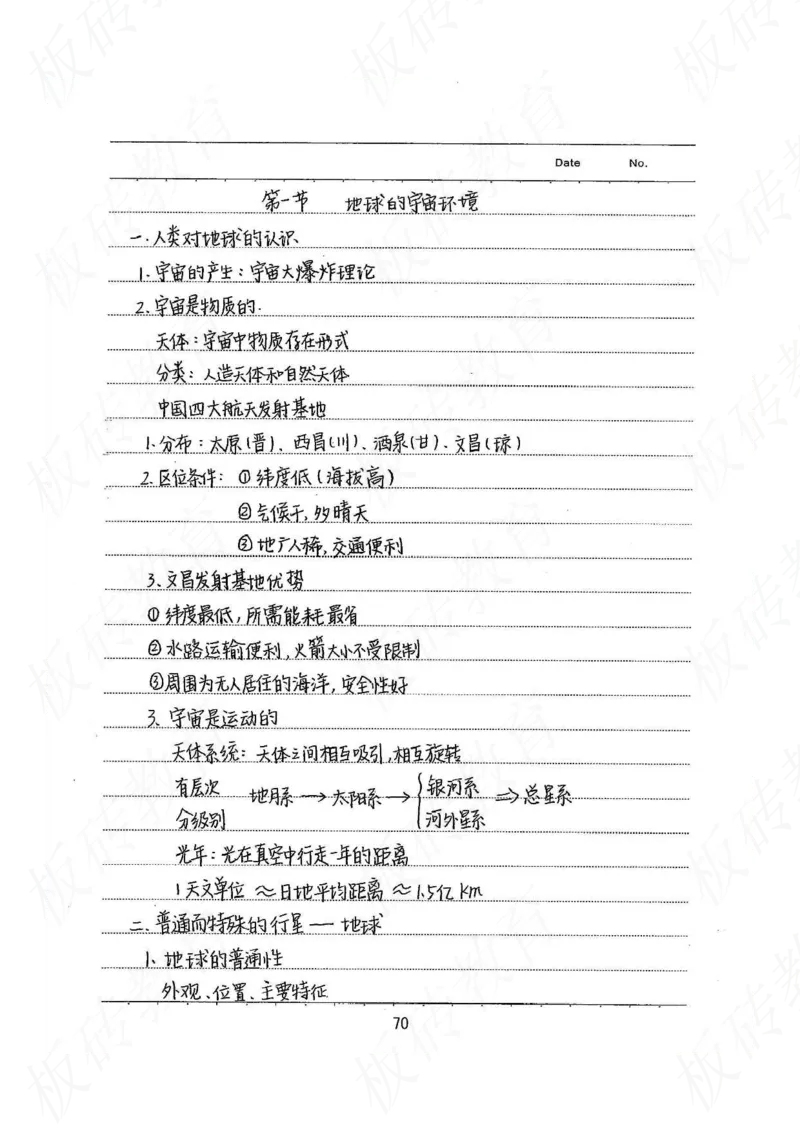 Date No.
第一节 地球的宇宙环境
一.人类对地球的认识
1.宇宙的产生:宇宙大爆炸理论
2.宇宙是物质的.
天体:宇宙中物质存在形式
分类:人造天体和自然天体
中国四大航天发射基地
1.分布:太原(晋)、西昌(川)、酒泉(甘)、文昌(琼)
2.区位条件: ①纬度低(海拔高)
②气候干,多晴天
③地广人稀,交通便利
3、文昌发射基地优势
①纬度最低,所需能耗最省
②水路运输便利,火箭大小不受限制
③周围为无人居住的海洋,安全性好
3、宇宙是运动的
天体系统:天体之间相互吸引,相互旋转
有层次 分级别 地月系→太阳系→{银河系 河外星系 ⇒总星系
光年:光在真空中行走一年的距离
1天文单位≈日地平均距离≈1.5亿km
二、普通而特殊的行星——地球
1、地球的普通性
外观、位置、主要特征
70
板砖教育